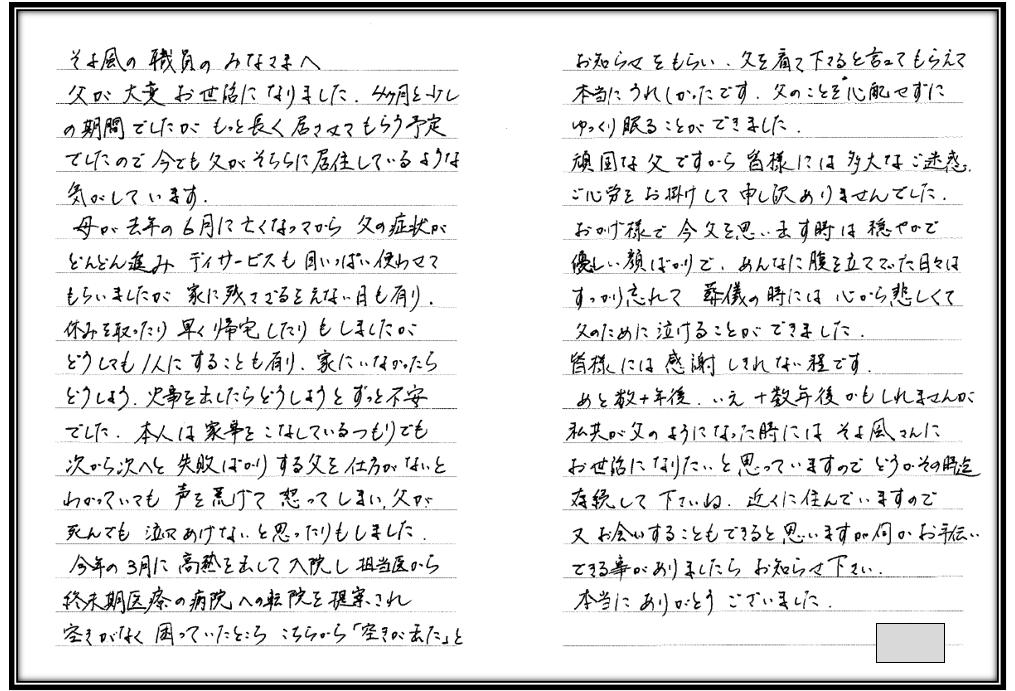 そよ風の職員のみなさまへ
父が大変お世話になりました。4ヶ月と少し
の期間でしたがもっと長く居させてもらう予定
でしたので今でも父がそちらに居住しているような
気がしています。
母が去年の6月に亡くなってから父の症状が
どんどん進みデイサービスも目いっぱい使わせて
もらいましたが家に残さざるをえない日も有り、
休みを取ったり早く帰宅したりもしましたが
どうしても1人にすることも有り、家にいなかったら
どうしよう、火事を出したらどうしようとずっと不安
でした。本人は家事をこなしているつもりでも
次から次へと失敗ばかりする父を仕方がないと
わかっていても声を荒げて怒ってしまい、父が
死んでも泣いてあげないと思ったりもしました。
今年の3月に高熱を出して入院し担当医から
終末期医療の病院への転院を提案され
空きがなく困っていたところこちらから「空きが出た」と
お知らせをもらい、父を看て下さると言ってもらえて
本当にうれしかったです。父のことを心配せずに
ゆっくり眠ることができました。
頑固な父ですから皆様には多大なご迷惑、
ご心労をお掛けして申し訳ありませんでした。
おかげ様で今父を思い出す時は穏やかで
優しい顔ばかりで、あんなに腹を立てていた日々は
すっかり忘れて葬儀の時には心から悲しくて
父のために泣けることができました。
皆様には感謝しきれない程です。
あと数十年後、いえ十数年後かもしれませんが
私共が父のようになった時にはそよ風さんに
お世話になりたいと思っていますのでどうかその時迄
存続して下さいね。近くに住んでいますので
又お会いすることもできると思いますが何かお手伝い
できる事がありましたらお知らせ下さい。
本当にありがとうございました。